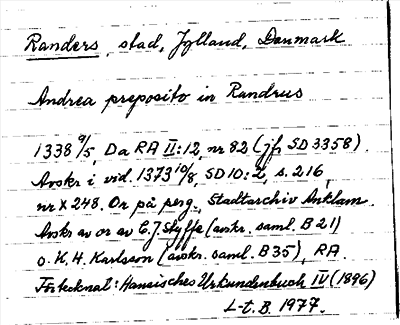 Randers, stad, Jylland, Danmark
Andrea preposito in Randrus
1338 9/5, Da RA II:12, nr 82 (jfr SD 3358).
Avskr i vid. 1373 10/8, SD 10:2, s. 216,
nr X 248. Or på perg., Stadtarchiv Anklam.
Avskr av or av C.J. Styffe (avskr. saml. B 21)
o. K.H. Karlsson (avskr. saml. B 35), RA.
Förtecknat: Hansisches Urkundenbuch IV (1896)
L-t. B. 1977.